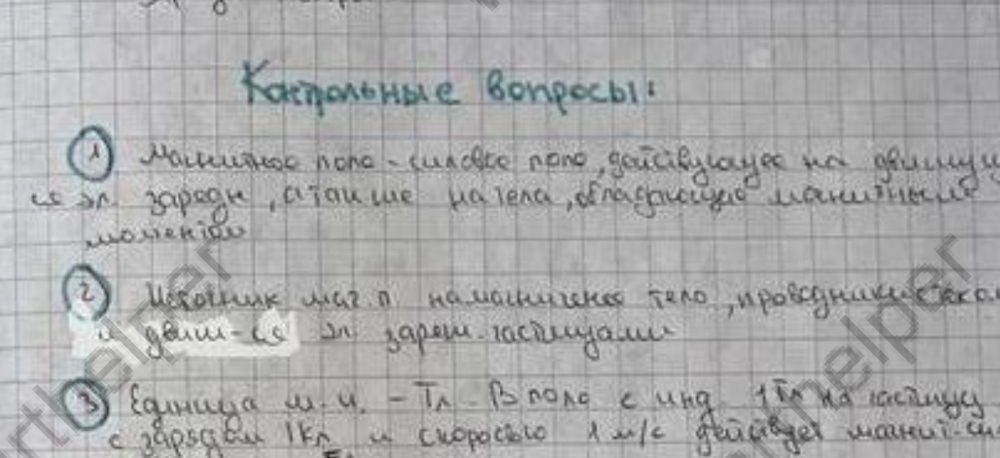 Контрольные вопросы:
1 Магнитное поле - силовое поле, действующее на движущу
ся эл. заряды, а также на тела, обладающие магнитным
моментом
2 Источник маг п намагниченное тело, проводники с ток
и движ-ся эл заряж. частицами
3 Единица м.и. - Тл. В поле с инд 1 Тл на частицу
с зарядом 1Кл и скоростью 1 м/с действует магнит-
rthelper
rthelper